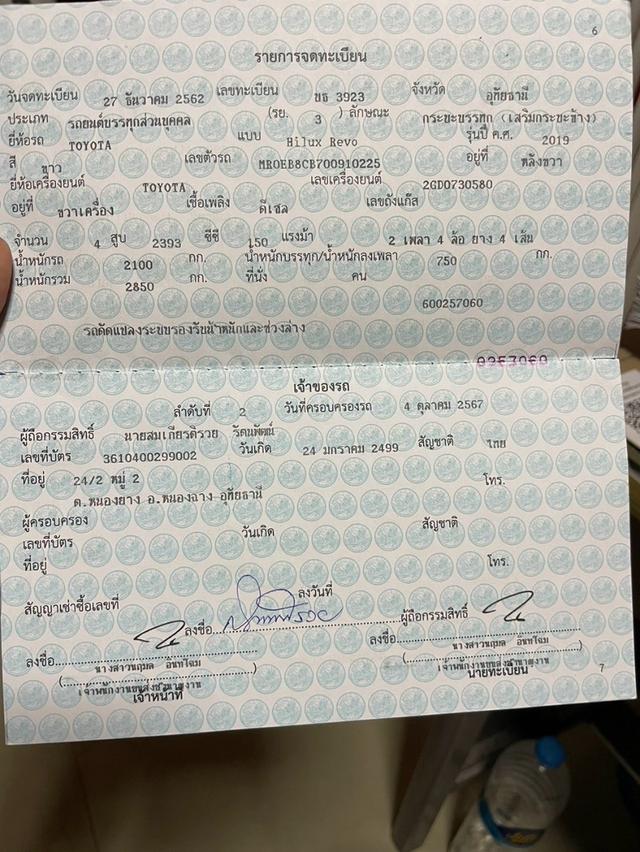 6
รายการจดทะเบียน
วันจดทะเบียน 27 ธันวาคม 2562 เลขทะเบียน บธ 3923 จังหวัด อุทัยธานี
ประเภท รถยนต์บรรทุกส่วนบุคคล (รย. 3 ) ลักษณะ กระบะบรรทุก (เสริมกระบะข้าง)
ยี่ห้อรถ TOYOTA แบบ Hilux Revo รุ่นปี ค.ศ. 2019
สี ขาว เลขตัวรถ MR0EB8CB700910225 อยู่ที่ หลังขวา
ยี่ห้อเครื่องยนต์ TOYOTA เลขเครื่องยนต์ 2GD0730580
อยู่ที่ ขวาเครื่อง เชื้อเพลิง ดีเซล เลขถังแก๊ส
จำนวน 4 สูบ 2393 ซีซี 150 แรงม้า 2 เพลา 4 ล้อ ยาง 4 เส้น
น้ำหนักรถ 2100 กก. น้ำหนักบรรทุก/น้ำหนักลงเพลา 750 กก.
น้ำหนักรวม 2850 กก. ที่นั่ง คน
600257060
รถดัดแปลงระบบรองรับน้ำหนักและช่วงล่าง
เจ้าของรถ
ลำดับที่ 2 วันที่ครอบครองรถ 4 ตุลาคม 2567
ผู้ถือกรรมสิทธิ์ นายสมเกียรติรวย รัตนพัฒน์
เลขที่บัตร 3610400299002 วันเกิด 24 มกราคม 2499 สัญชาติ ไทย
ที่อยู่ 24/2 หมู่ 2 โทร.
ต.หนองยาง อ.หนองฉาง อุทัยธานี
ผู้ครอบครอง
เลขที่บัตร วันเกิด สัญชาติ
ที่อยู่ โทร.
สัญญาเช่าซื้อเลขที่ ลงวันที่
ลงชื่อ ผู้ถือกรรมสิทธิ์
ลงชื่อ ลงชื่อ
เจ้าหน้าที่ นายทะเบียน
7